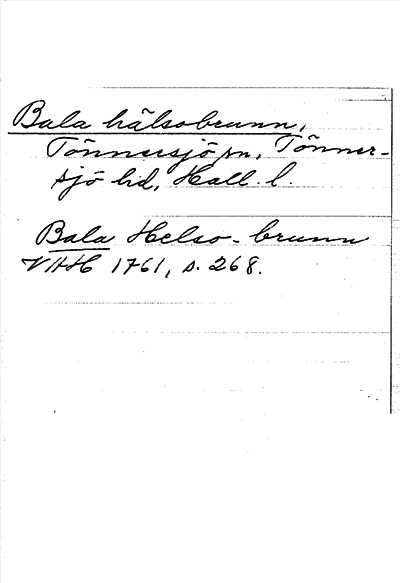 Bala hälsobrunn,
Tönnersjö sn, Tönner-
sjö hd, Hall. l.
Bala Helso-brunn
VHH 1761, s. 268.